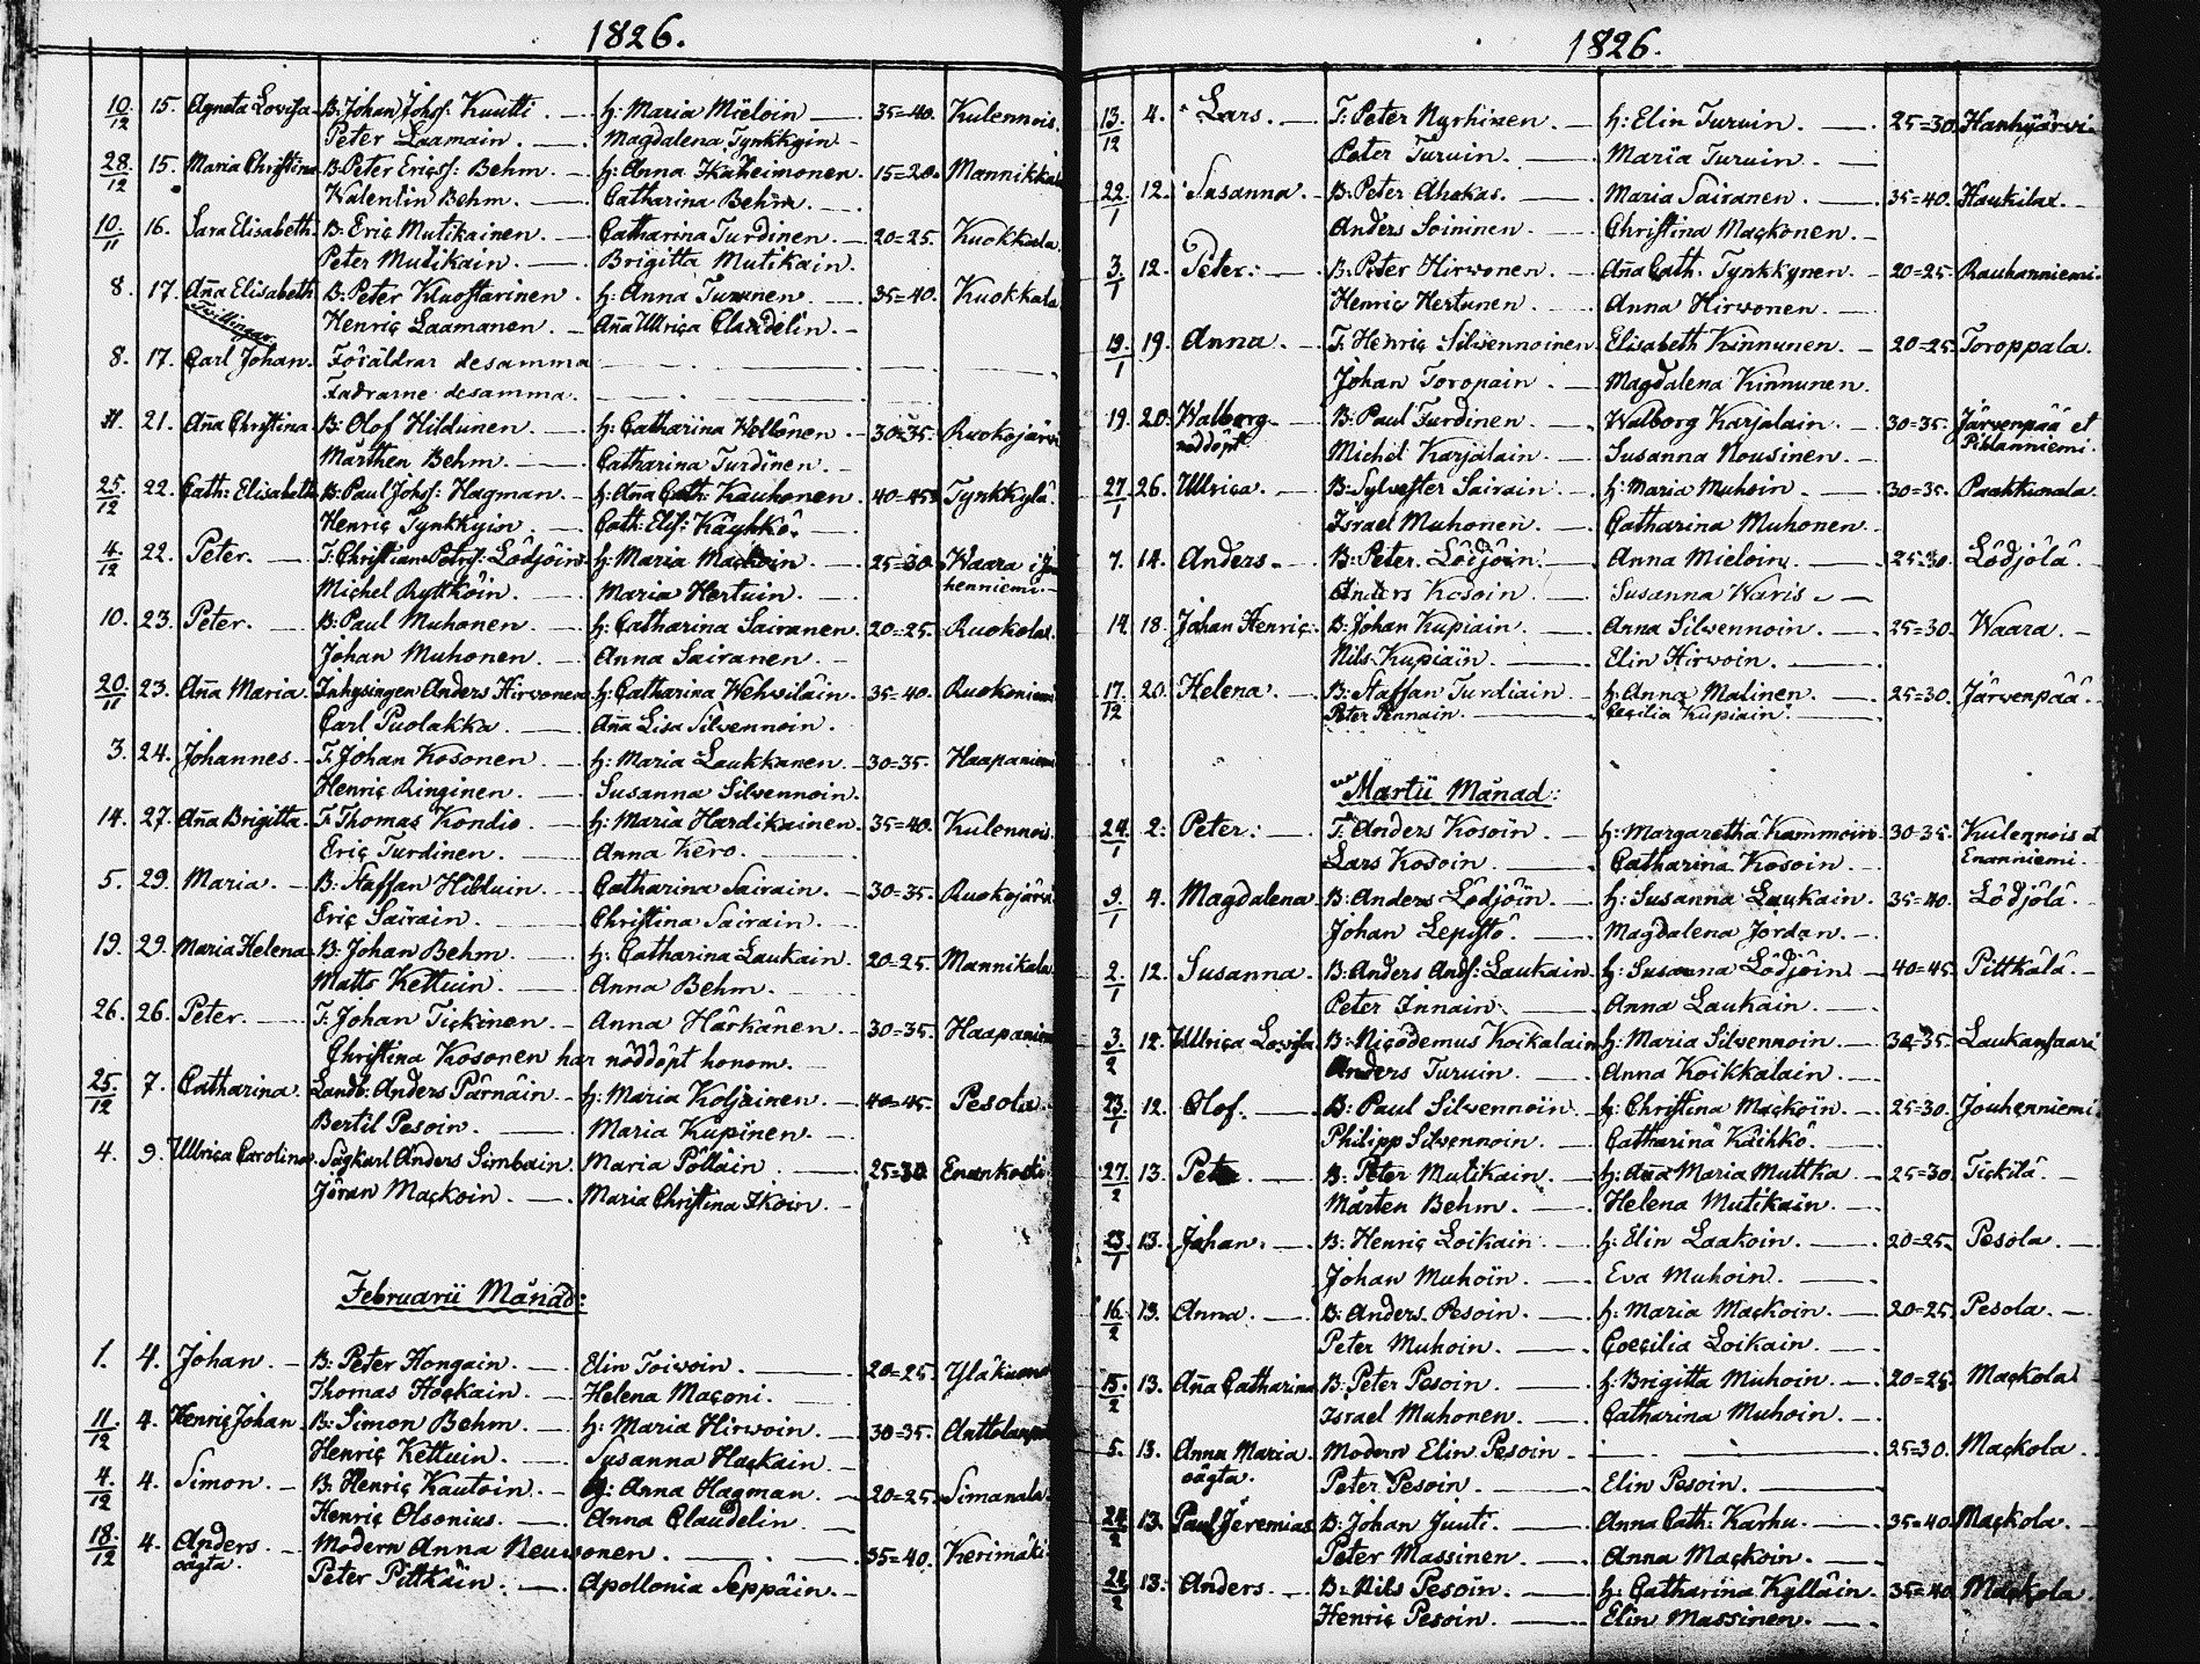 1826.
10/12 15. Agneta Lovisa B. Johan Johss. Kuutti. h: Maria Mieloin 35=40. Kulennois.
Peter Laamain. Magdalena Tynkkyin
28/12 15. Maria Christina B. Peter Ericss: Behm. h: Anna Ikäheimonen. 15=20. Mannikkala
Walentin Behm. Catharina Behm.
10/11 16. Sara Elisabeth. B: Eric Mutikainen. Catharina Turdinen. 20=25. Kuokkala.
Peter Mutikain. Brigitta Mutikain.
8. 17. Aña Elisabeth B: Peter Kluostarinen. h: Anna Turunen. 35=40. Kuokkala
Tvillingar Henric Laamanen. Aña Ulrica Claudelin.
8. 17. Carl Johan. Föräldrar desamma
Fadrarne desamma.
11. 21. Aña Christina B: Olof Hildunen. h: Catharina Wellônen. 30=35. Ruokojärvi
Mårthen Behm. Catharina Turdinen.
25/12 22. Cath: Elisabeth B: Paul Johss: Hagman. h: Aña Cath: Kauhonen. 40=45. Tynkkylä.
Henric Tynkkyin. Cath: Elis: Käyhkö.
4/12 22. Peter. T: Christian Petrss: Lödjöin h: Maria Mackoin. 25=30. Waara i
Michel Ryttköin. Maria Hertuin. henniemi.
10. 23. Peter. B: Paul Muhonen. h: Catharina Sairanen. 20=25. Ruokolax.
Johan Muhonen. Anna Sairanen.
20/11 23. Aña Maria. Inhysingen Anders Hirvonen h: Catharina Wehviläin. 35=40. Ruokoniemi
Carl Puolakka. Aña Lisa Silvennoin.
3. 24. Johannes. T. Johan Kosonen. h: Maria Laukkanen. 30=35. Haapaniemi
Henric Ringinen. Susanna Silvennoin.
14. 27. Aña Brigitta. T. Thomas Kondio. h: Maria Hardikainen. 35=40. Kulennois.
Eric Turdinen. Anna Kero.
5. 29. Maria. B: Staffan Hilduin. Catharina Sairain. 30=35. Ruokojärvi
Eric Sairain. Christina Sairain.
19. 29. Maria Helena B: Johan Behm. h: Catharina Laukain. 20=25. Mannikala.
Matts Kettuin. Anna Behm.
26. 26. Peter. T: Johan Tickinen. Anna Härkänen. 30=35. Haapaniemi
Christina Kosonen har nöddöpt honom.
25/12 7. Catharina. Landb: Anders Pärnäin. h: Maria Koljainen. 40=45. Pesola.
Bertil Pesoin. Maria Kupinen.
4. 9. Ullrica Carolina. Sågkarl Anders Simbain. Maria Pölläin. 25=30. Enonkoski
Jöran Mackoin. Maria Christina Ikoin.
Februarii Månad:
1. 4. Johan. B: Peter Hongain. Elin Toivoin. 20=25.
Thomas Hockain. Helena Maconi.
11/12 4. Henric Johan B: Simon Behm. h: Maria Hirvoin. 30=35.
Henric Kettuin. Susanna Hackain.
4/12 4. Simon. B: Henric Kautoin. h: Anna Hagman. 20=25. Simanala.
Henric Olsonius. Anna Claudelin.
18/12 4. Anders. Modern Anna Neuvonen. 35=40. Kerimäki
oägta. Peter Pittkäin. Apollonia Seppäin.
1826.
13/12 4. Lars. T: Peter Nyrhinen. h: Elin Turuin. 25=30. Hanhijärvi.
Peter Turuin. Maria Turuin.
22/1 12. Susanna. B: Peter Ahokas. Maria Sairanen. 35=40. Haukilax.
Anders Soininen. Christina Mackonen.
3/1 12. Peter. B. Peter Hirvonen. Aña Cath. Tynkkynen. 20=25. Rauhanniemi.
Henric Hertunen. Anna Hirvonen.
19/1 19. Anna. T. Henric Silvennoinen. Elisabeth Kinnunen. 20=25. Toroppala.
Johan Toropain. Magdalena Kinnunen.
19. 20. Walborg B: Paul Turdinen. Walborg Karjalain. 30=35. Järvenpää et
nöddöpt. Michel Karjalain. Susanna Nousinen. Pihlanniemi.
27/1 26. Ullrica. B: Sylvester Sairain. h: Maria Muhoin. 30=35. Paakkunala.
Israel Muhonen. Catharina Muhonen.
7. 14. Anders. B: Peter Lödjöin. Anna Mieloin. 25=30. Lödjölä.
Anders Kosoin. Susanna Waris.
14. 18. Johan Henric. B: Johan Kupiain. Anna Silvennoin. 25=30. Waara.
Nils Kupiain. Elin Hirvoin.
17/12 20. Helena. B: Staffan Turdiain. h: Anna Malinen. 25=30. Järvenpää.
Peter Pennain. Cecilia Kupiain.
Martii Månad:
24/1 2. Peter. T. Anders Kosoin. h: Margaretha Kammoin. 30=35. Kulennois et
Lars Kosoin. Catharina Kosoin. Enanniemi.
9/1 4. Magdalena B: Anders Lödjöin. h: Susanna Laukain. 35=40. Lödjölä.
Johan Lepistö. Magdalena Jordan.
2/1 12. Susanna. B: Anders Ands: Laukain. h: Susanna Lödjöin. 40=45. Pittkälä.
Peter Innain. Anna Laukain.
3/2 12. Ullrica Lovisa. B: Nicodemus Koikalain. h: Maria Silvennoin. 30=35. Laukansaari
Anders Turuin. Anna Koikkalain.
23/1 12. Olof. B: Paul Silvennoin. h: Christina Mackoin. 25=30. Jouhenniemi
Philipp Silvennoin. Catharina Käihkö.
27/2 13. Peter. B: Peter Mutikain. h: Aña Maria Muttka. 25=30. Tickilä.
Mårten Behm. Helena Mutikain.
23/1 13. Johan. B: Henric Loikain. h: Elin Laakoin. 20=25. Pesola.
Johan Muhoin. Eva Muhoin.
16/2 13. Anna. B: Anders Pesoin. h: Maria Mackoin. 20=25. Pesola.
Peter Muhoin. Coecilia Loikain.
15/2 13. Aña Catharina B: Peter Pesoin. h: Brigitta Muhoin. 20=25. Mackola
Israel Muhonen. Catharina Muhoin.
5. 13. Anna Maria. Modern Elin Pesoin. 25=30. Mackola.
oägta. Peter Pesoin. Elin Pesoin.
24/2 13. Paul Jeremias. B: Johan Juuti. Anna Cath: Karhu. 35=40. Mackola.
Peter Massinen. Anna Mackoin.
24/2 13. Anders. B: Nils Pesoin. h: Catharina Kylläin. 35=40. Mackola.
Henric Pesoin. Elin Massinen.